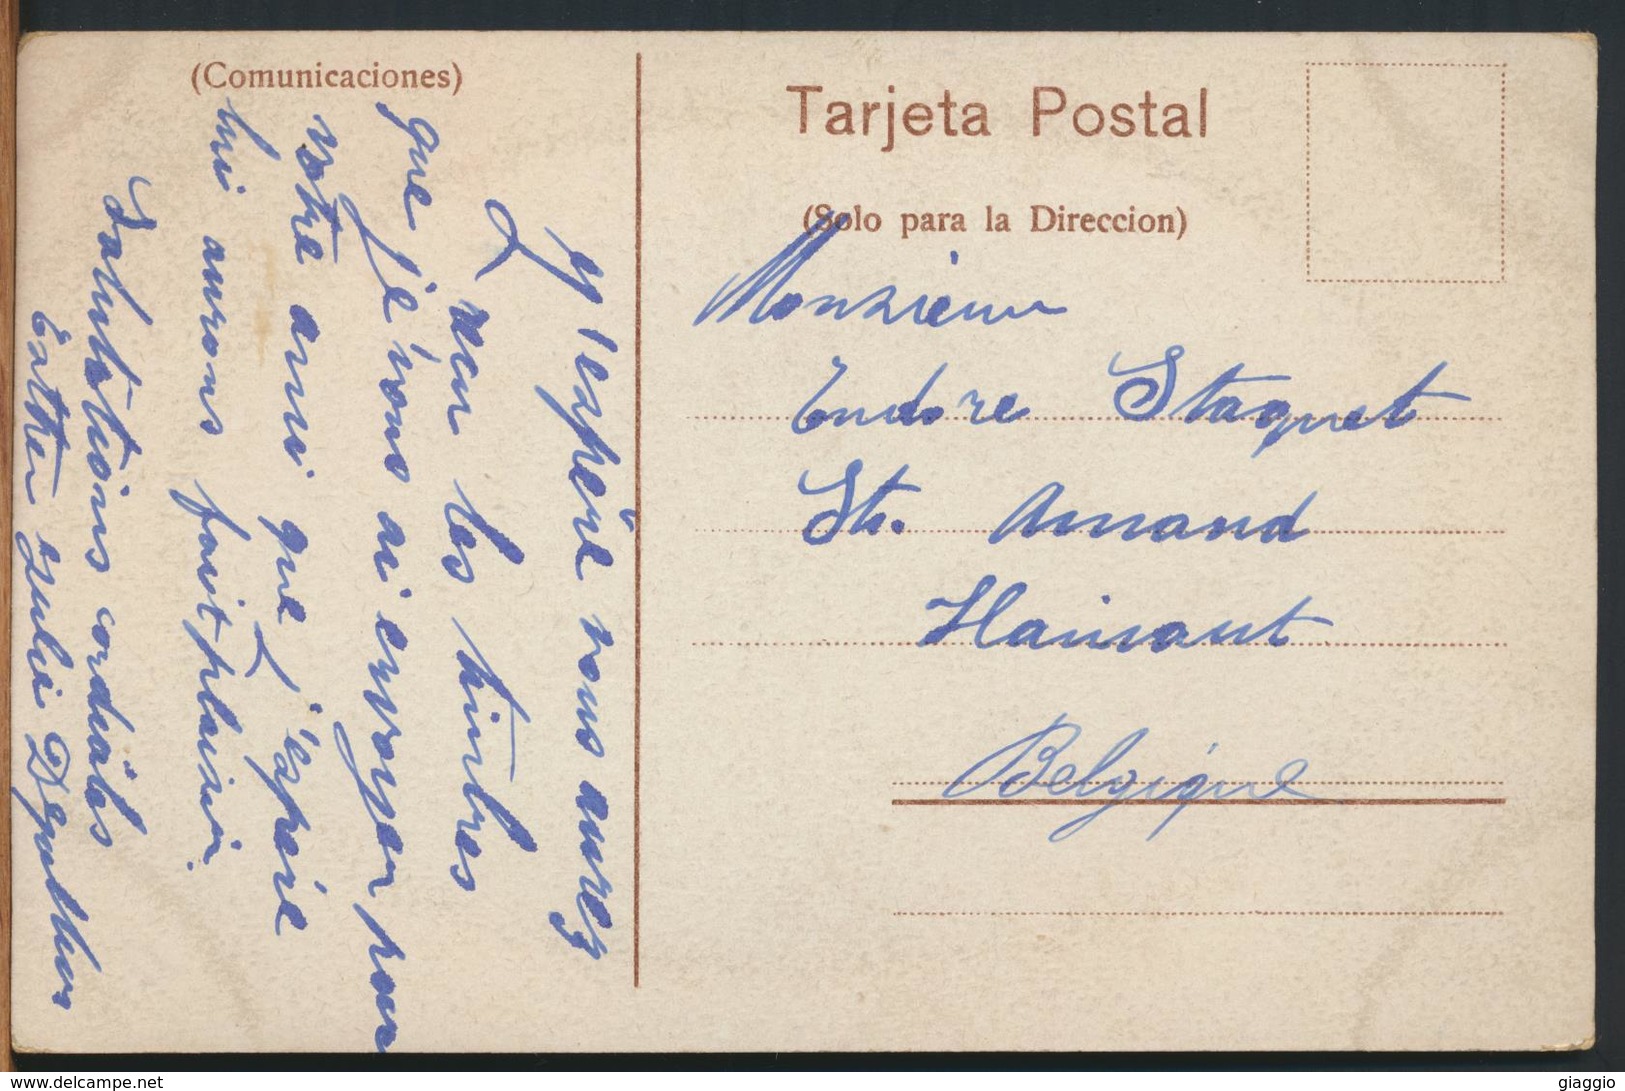 (Comunicaciones)
J'espère vous aurez
reçu les timbres
que je vous ai envoyer pour
votre ami que j'espère
lui aurons fait plaisir.
Salutations cordiales
Esther Julia
Tarjeta Postal
(Solo para la Direccion)
Monsieur
Endore Staquet
St. Amand
Hainaut
Belgique
www.delcampe.net
giaggio